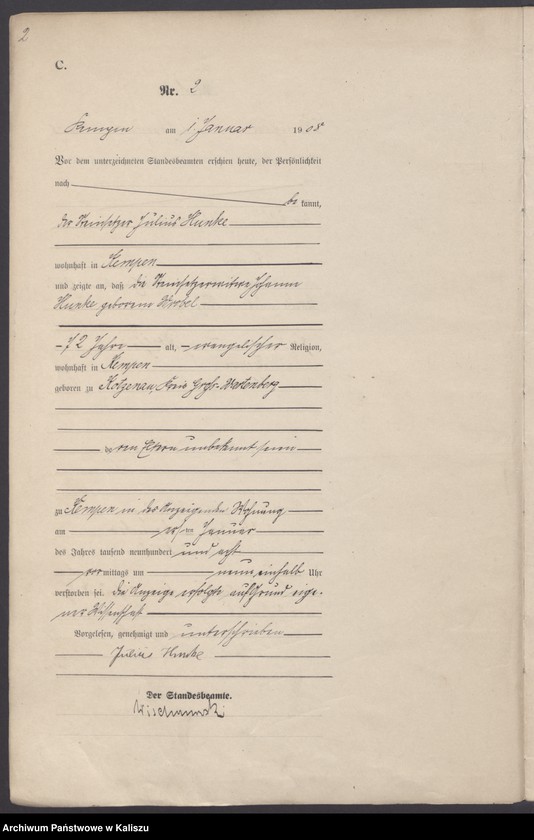 2
C.
Nr. 2
Kempen am 1. Januar 1908
Vor dem unterzeichneten Standesbeamten erschien heute, der Persönlichkeit
nach
be kannt,
der Steinsetzer Julius Hunke
wohnhaft in Kempen
und zeigte an, daß die Steinsetzerwitwe Johanna
Hunke geborene
72 Jahre alt, evangelischer Religion,
wohnhaft in Kempen
geboren zu Kreis Groß-Wartenberg
deren Eltern unbekannt sein
zu Kempen in des Anzeigenden Wohnung
am ten Januar
des Jahres tausend neunhundert und acht
vor mittags um neun einhalb Uhr
verstorben sei. Die Anzeige erfolgte auf Grund eige-
ner Wissenschaft
Vorgelesen, genehmigt und unterschrieben
Julius Hunke
Der Standesbeamte.
Archiwum Państwowe w Kaliszu